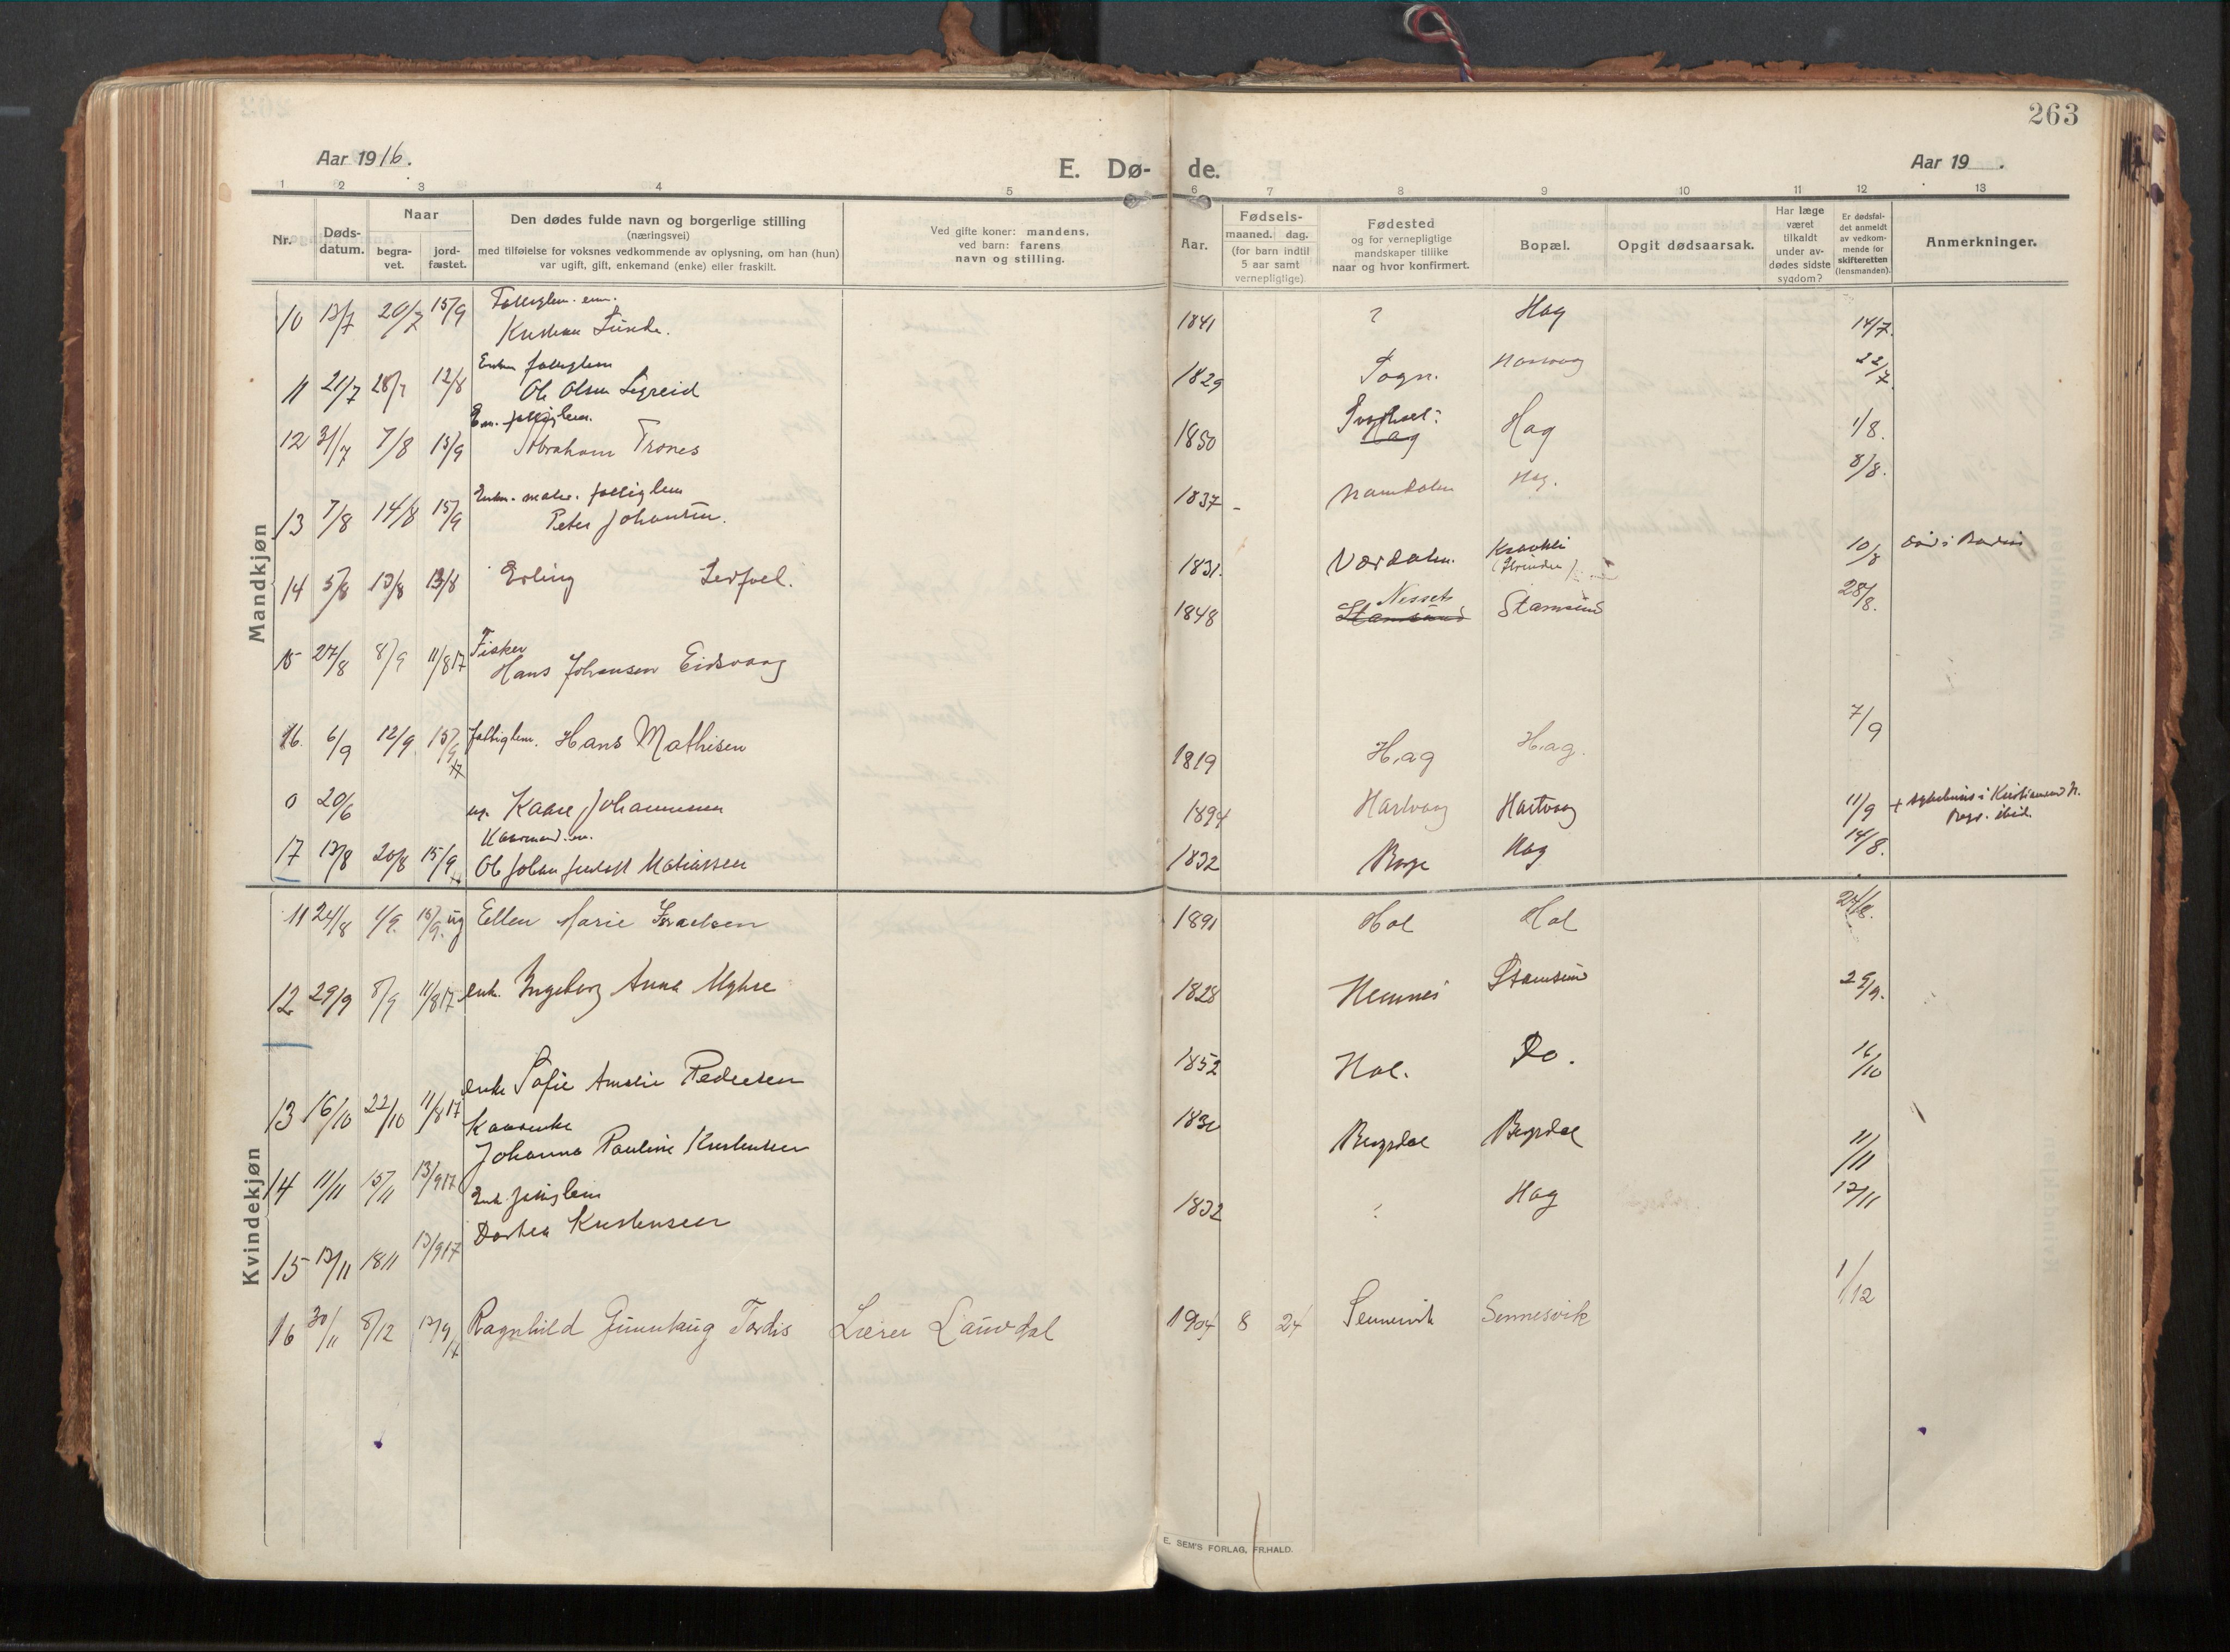 263
Aar 1916.
E. Dø- de.
Aar 19 .
1 2 3 4 5 6 7 8 9 10 11 12 13
Nr.
Døds-
datum.
Naar
begra-
vet.
jord-
fæstet.
Den dødes fulde navn og borgerlige stilling
(næringsvei)
med tilføielse for voksnes vedkommende av oplysning, om han (hun)
var ugift, gift, enkemand (enke) eller fraskilt.
Ved gifte koner: mandens,
ved barn: farens
navn og stilling.
Aar.
Fødsels-
maaned. dag.
(for barn indtil
5 aar samt
vernepligtige)
Fødested
og for vernepligtige
mandskaper tillike
naar og hvor konfirmert.
Bopæl.
Opgit dødsaarsak.
Har læge
været
tilkaldt
under av-
dødes sidste
sygdom?
Er dødsfal-
det anmeldt
av vedkom-
mende for
skifteretten
(lensmanden).
Anmerkninger.
Mandkjøn
10 13/7 20/7 15/9 Kristian Lunde. 1841 ? Hag 14/7.
11 21/7 28/7 12/8 Ole Olsen 1829 Sogn. 22/7
12 31/7 7/8 15/9 Abraham Trones 1850 Hag Hag 1/8.
13 7/8 14/8 15/9 Peter Johansen. 1837 Namdalen Hag. 8/8.
14 5/8 13/8 13/8 Erling 1831. Værdalen. 10/8
15 27/8 8/9 11/8 17 Fisker
Hans Johansen Eidsvaag 1848 Stamsund Nesset Stamsund 28/8.
16. 6/9 12/9 15/9 17 fattiglem. Hans Mathisen 1819 Hag Hag. 7/9
0 20/6 ug. Kaare Johannessen 1894 Hartvaag Hartvaag 11/9 + sykehus i Kristiansund N.
17 13/8 20/8 15/9 Ole Johan Matiassen 1832 Borge Hag 14/8.
Kvindekjøn
11 24/8 1/9. 15/9. ug Ellen Marie Israelsen 1891 Hol Hol 24/8.
12 29/9 8/9 11/8 17 enk. Ingeborg Anna 1828 Hemnes Stamsund 29/9.
13 16/10 22/10 11/8 17 enke Sofie Amalie Pedersen 1852 Hol. Do. 16/10
14 11/11 15/11 13/9 17 Kaarenke
Johanna Pauline Kristensen Bergsdal Bergsdal 11/11
15 13/11 18 11 13/9 17 Dorthea Kristensen 1832 ? Hag 13/11
16 30/11 8/12 Ragnhild Gunnhaug Tordis Lærer Lauvdal 1904 8 24 Sennesvik Sennesvik 1/12
E. SEM'S FORLAG, FR.HALD.